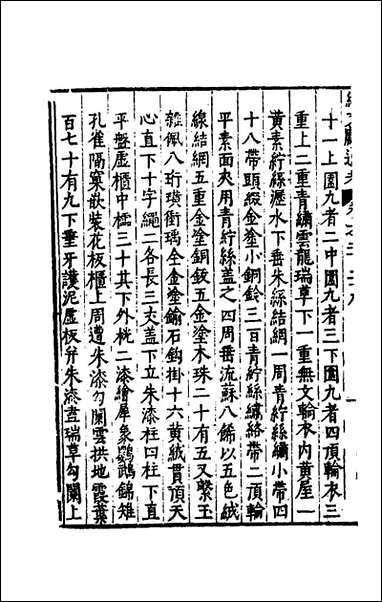 十一上圓九者二中圓九者三下圓九者四頂輪衣三
重上二重青繡雲龍瑞草下一重無文輪衣內黃屋一
黃素紵絲瀝水下垂朱絲結網一周青紵絲繡小帶四
十八帶頭綴金塗小銅鈴三百青紵絲繡絡帶二頂輪
平素面夾用青紵絲蓋之四周垂流蘇八餙以五色絨
線結網五重金塗銅鈸五金塗木珠二十有五又繫玉
雜佩八珩璜衝瑀全金塗鍮石鈎掛十六黃絨貫頂天
心直下十字繩二各長三丈蓋下立朱漆柱四柱下直
平盤虛櫃中櫺三十其下外桄二漆繪犀象鸚鵡錦雉
孔雀隔窠嵌裝花板櫃上周遭朱漆勾闌雲拱地霞葉
百七十有九下垂牙護泥虛板弁朱漆畫瑞草勾闌上